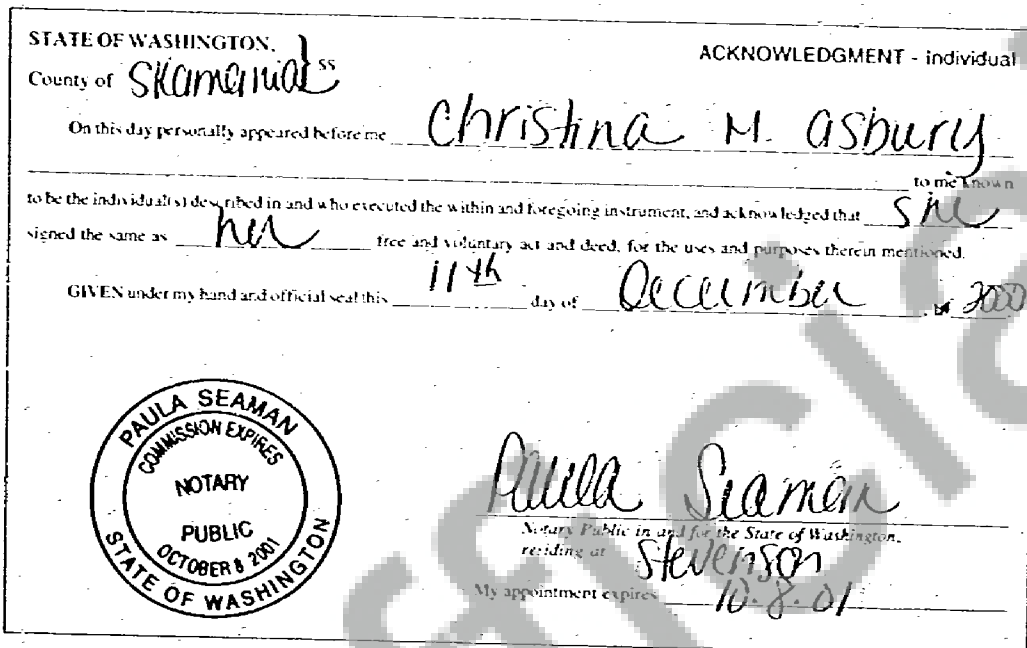 STATE OF WASHINGTON,
ACKNOWLEDGMENT - individual
County of Skamania } ss
On this day personally appeared before me Christina M. Asbury
to me known
to be the individual(s) described in and who executed the within and foregoing instrument, and acknowledged that she
signed the same as her free and voluntary act and deed, for the uses and purposes therein mentioned.
GIVEN under my hand and official seal this 11th day of December, 2000
PAULA SEAMAN
COMMISSION EXPIRES
NOTARY
PUBLIC
OCTOBER 8 2001
STATE OF WASHINGTON
Paula Seaman
Notary Public in and for the State of Washington,
residing at Stevenson
My appointment expires 10.8.01